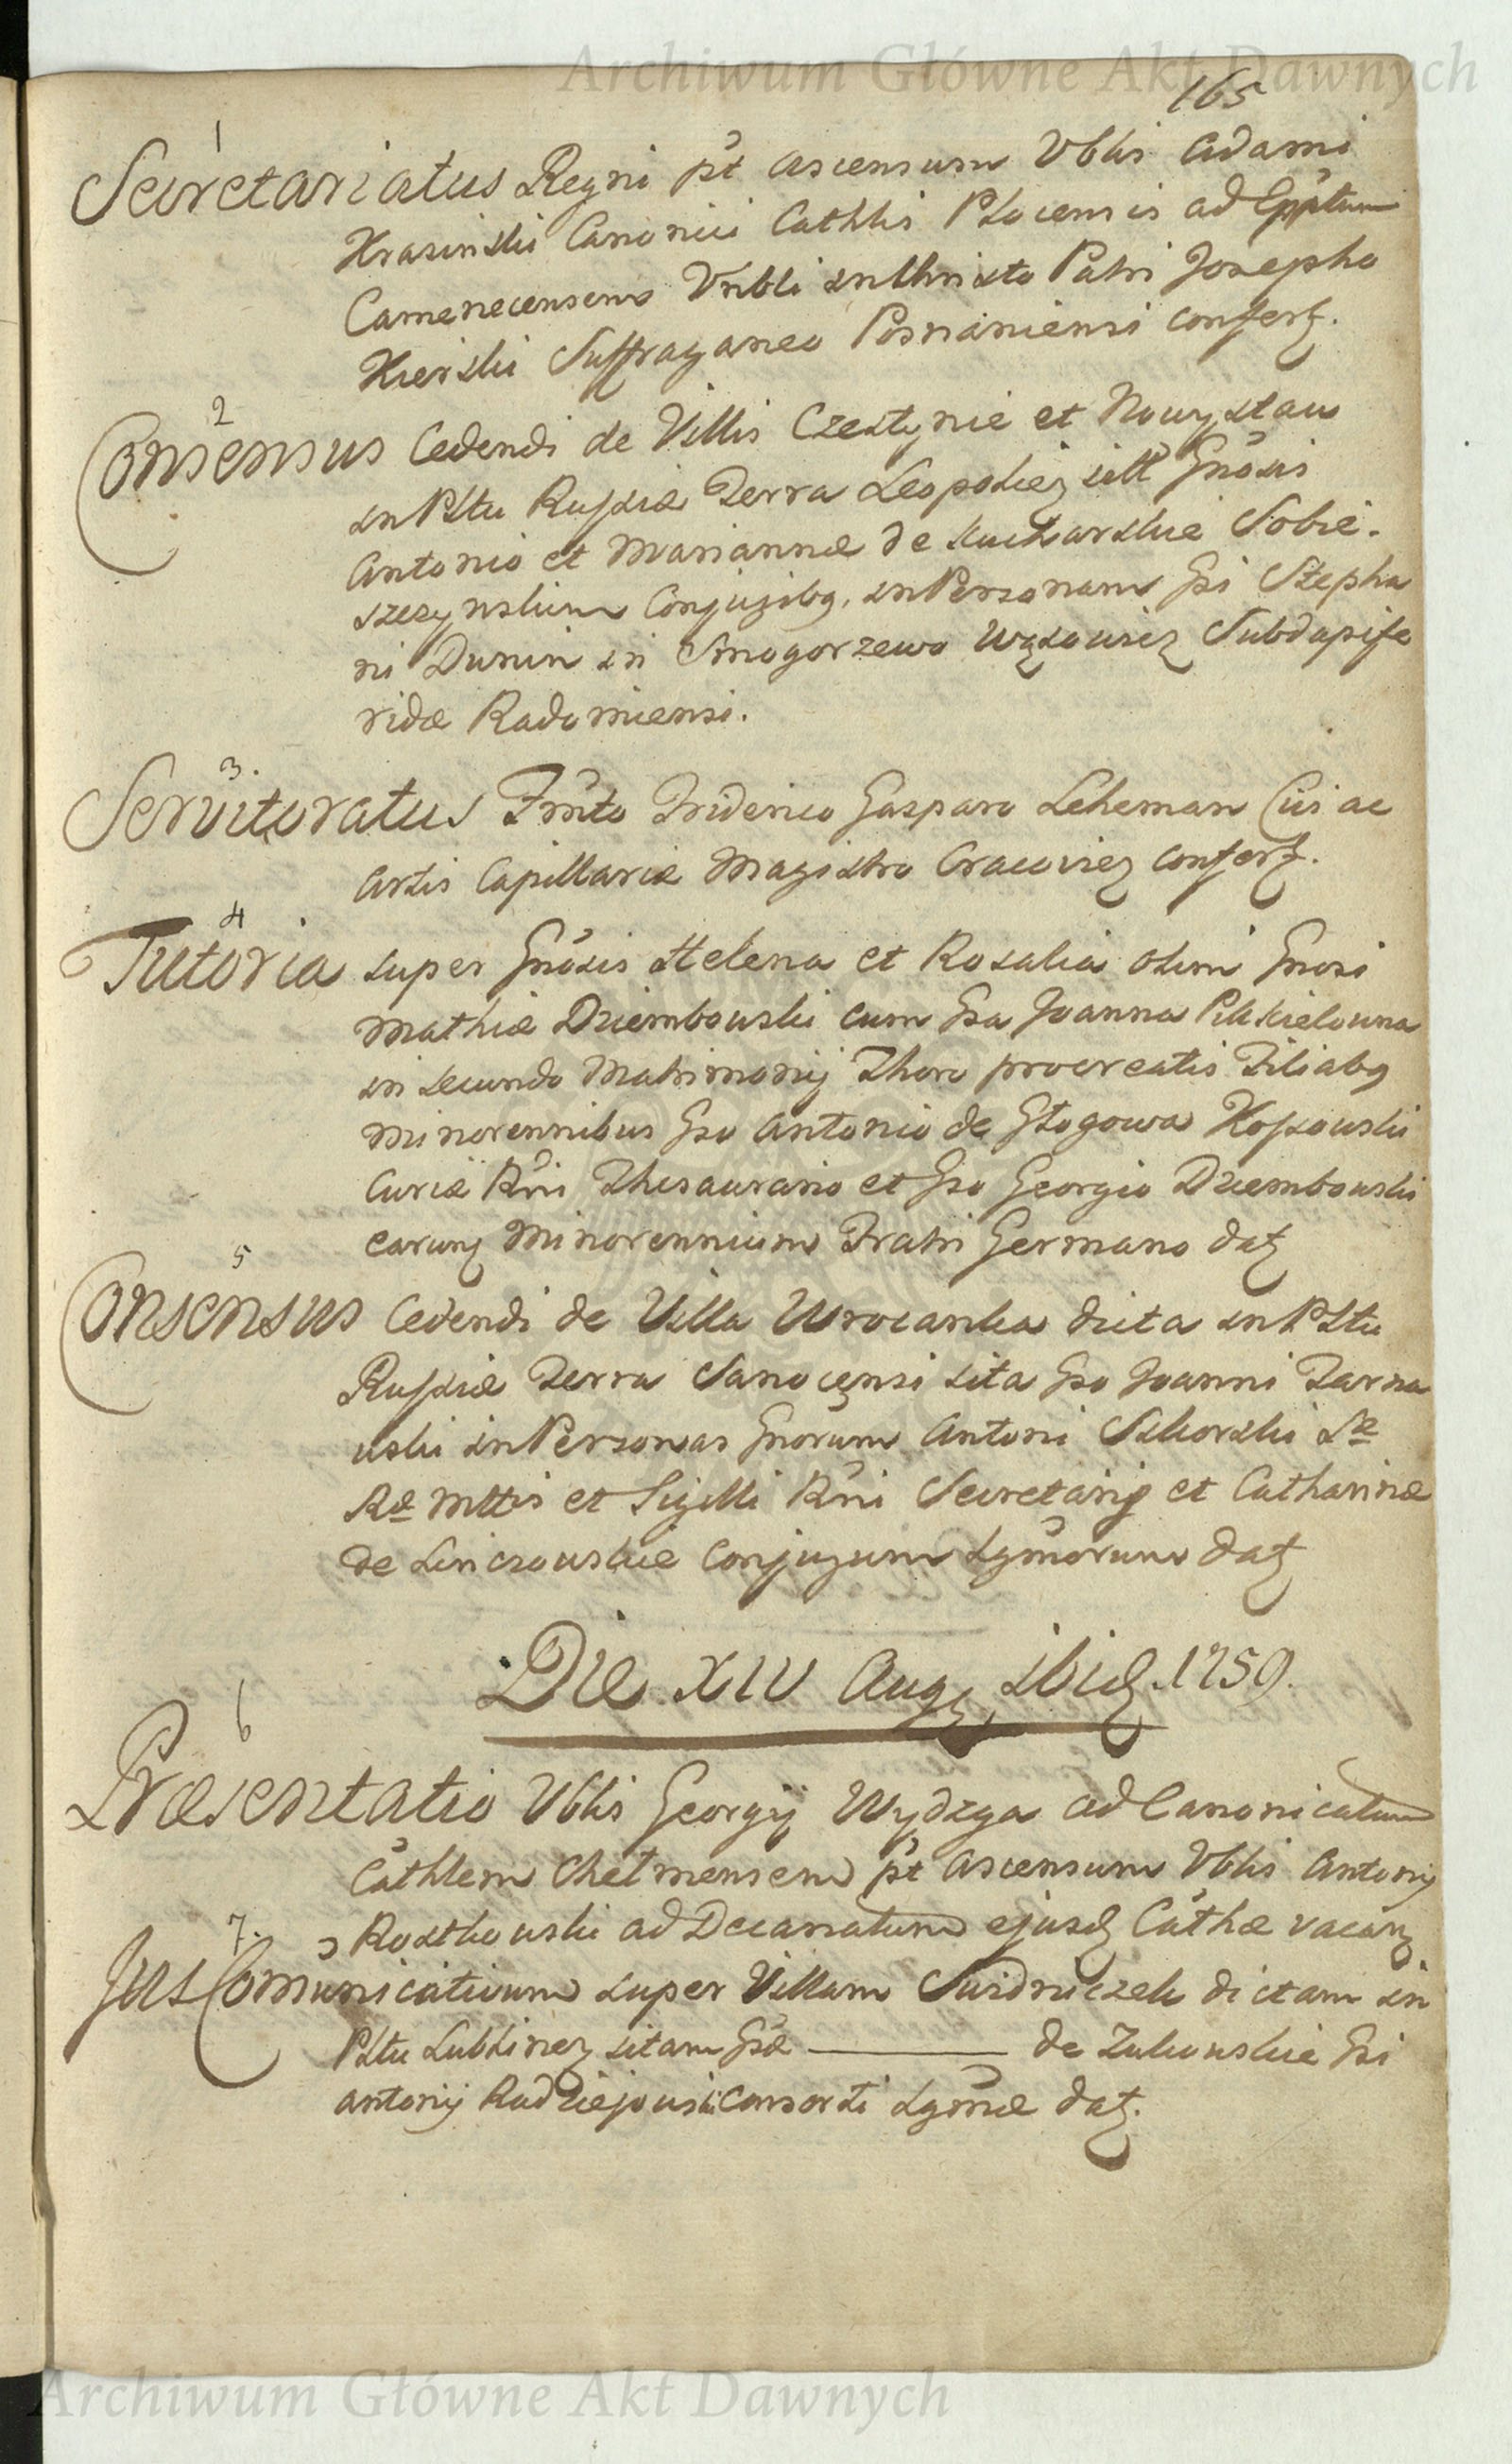 Archiwum Główne Akt Dawnych
165
1
Secretariatus Regni pt ascensum Vblis Adami
Krasinski Canonici Cathlis Plocensis ad Epptum
Camenecensem Vribli in Christo Patri Josepho
Kierski Suffraganeo Posnaniensi confert.
2
Consensus Cedendi de Villis Czestynie et Nowystaw
in Pltu Russiæ Terra Leopoliez sitt Gnosis
Antonio et Mariannæ de Kucharskie Sobie-
szczynskim Conjugibg, in Personam Gsi Stepha
ni Dunin in Smogorzewo Wąsowicz Subdapife
ridæ Radomiensi.
3.
Servitoratus Fmto Friderico Gasparo Leheman Cui ac
Artis Capillariæ Magistro Cracoviez confert.
4
Tutoria super Gnosis Helena et Rosalia olim Gnosi
Mathiæ Dziembowski cum Gsa Joanna Pikkielowna
in secundo Matrimonij Thoro procreatis Filiabg
Minorennibus Gso Antonio de Głogowa Kossowski
Curiæ Rni Thesaurario et Gso Georgio Dziembowski
earum Minorennium Fratri Germano dat
5
Consensus Cedendi de Villa Wrocanka dicta in Pltu
Russiæ Terra Sanocensi sita Gso Joanni Tarna
wski in Personas Gnorum Antoni Sikorski Sæ
Ræ Mttis et Sigilli Rni Secretarij et Catharinæ
de Linczowskie Conjugum Lgmorum dat
Die XIV Aug, ibid. 1759.
6
Præsentatio Vblis Georgij Wydzga ad Canonicatum
Cathlem Chelmensem pt Ascensum Vblis Antonij
Rostkowski ad Decanatum ejusd Cathæ vacan
7.
Jus Comunicativum super Villam Swidniczek dictam in
Pltu Lublinez sitam Gsæ ——— de Zukowskie Gsi
Antonij Radziejowski Consorti Lgmæ dat.
Archiwum Główne Akt Dawnych